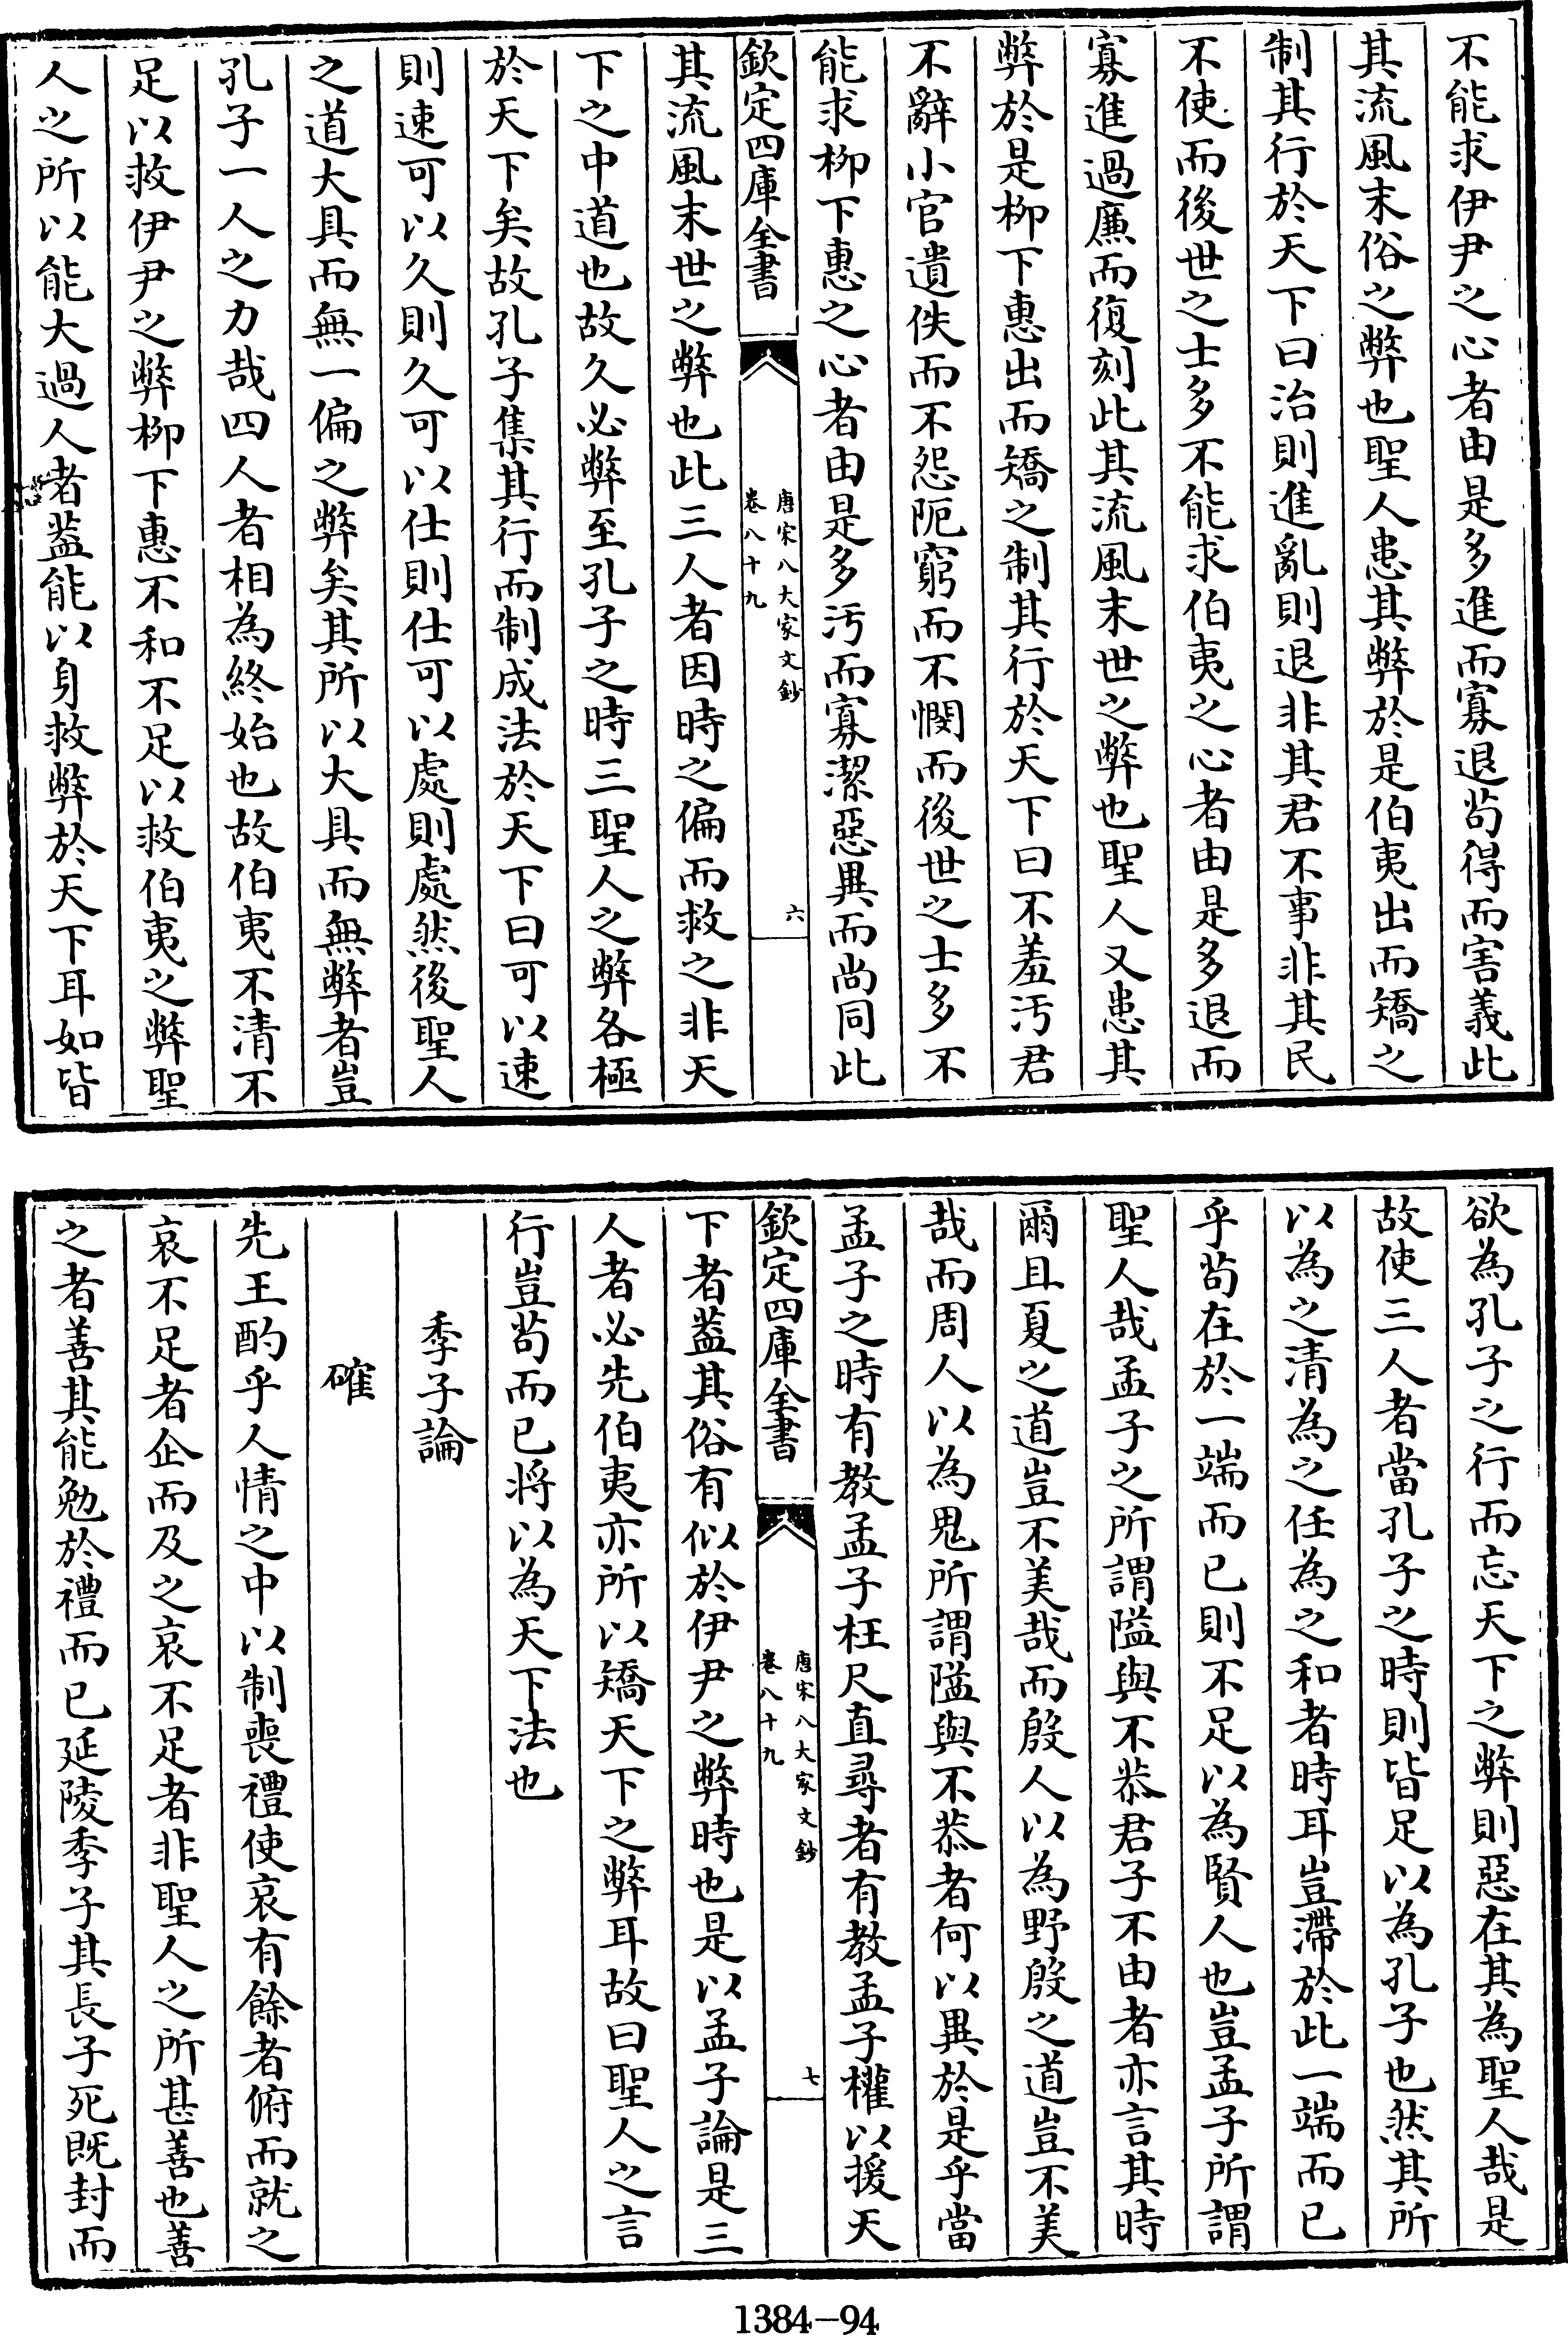 不能求伊尹之心者由是多進而寡退茍得而害義此
其流風末俗之弊也聖人患其弊於是伯夷出而矯之
制其行於天下曰治則進亂則退非其君不事非其民
不使而後世之士多不能求伯夷之心者由是多退而
寡進過廉而復刻此其流風末世之弊也聖人又患其
弊於是柳下惠出而矯之制其行於天下曰不羞汚君
不辭小官遺佚而不怨阨窮而不憫而後世之士多不
能求柳下惠之心者由是多汚而寡潔惡異而尚同此
欽定四庫全書
唐宋八大家文鈔
卷八十九
六
其流風末世之弊也此三人者因時之偏而救之非天
下之中道也故久必弊至孔子之時三聖人之弊各極
於天下矣故孔子集其行而制成法於天下曰可以速
則速可以久則久可以仕則仕可以處則處然後聖人
之道大具而無一偏之弊矣其所以大具而無弊者豈
孔子一人之力哉四人者相為終始也故伯夷不清不
足以救伊尹之弊柳下惠不和不足以救伯夷之弊聖
人之所以能大過人者葢能以身救弊於天下耳如皆
欲為孔子之行而忘天下之弊則惡在其為聖人哉是
故使三人者當孔子之時則皆足以為孔子也然其所
以為之清為之任為之和者時耳豈滯於此一端而已
乎茍在於一端而已則不足以為賢人也豈孟子所謂
聖人哉孟子之所謂隘與不恭君子不由者亦言其時
爾且夏之道豈不美哉而殷人以為野殷之道豈不美
哉而周人以為鬼所謂隘與不恭者何以異於是乎當
孟子之時有教孟子枉尺直尋者有教孟子權以援天
欽定四庫全書
唐宋八大家文鈔
卷八十九
七
下者葢其俗有似於伊尹之弊時也是以孟子論是三
人者必先伯夷亦所以矯天下之弊耳故曰聖人之言
行豈茍而已将以為天下法也
季子論
確
先王酌乎人情之中以制喪禮使哀有餘者俯而就之
哀不足者企而及之哀不足者非聖人之所甚善也善
之者善其能勉於禮而已延陵季子其長子死既封而
1384-94